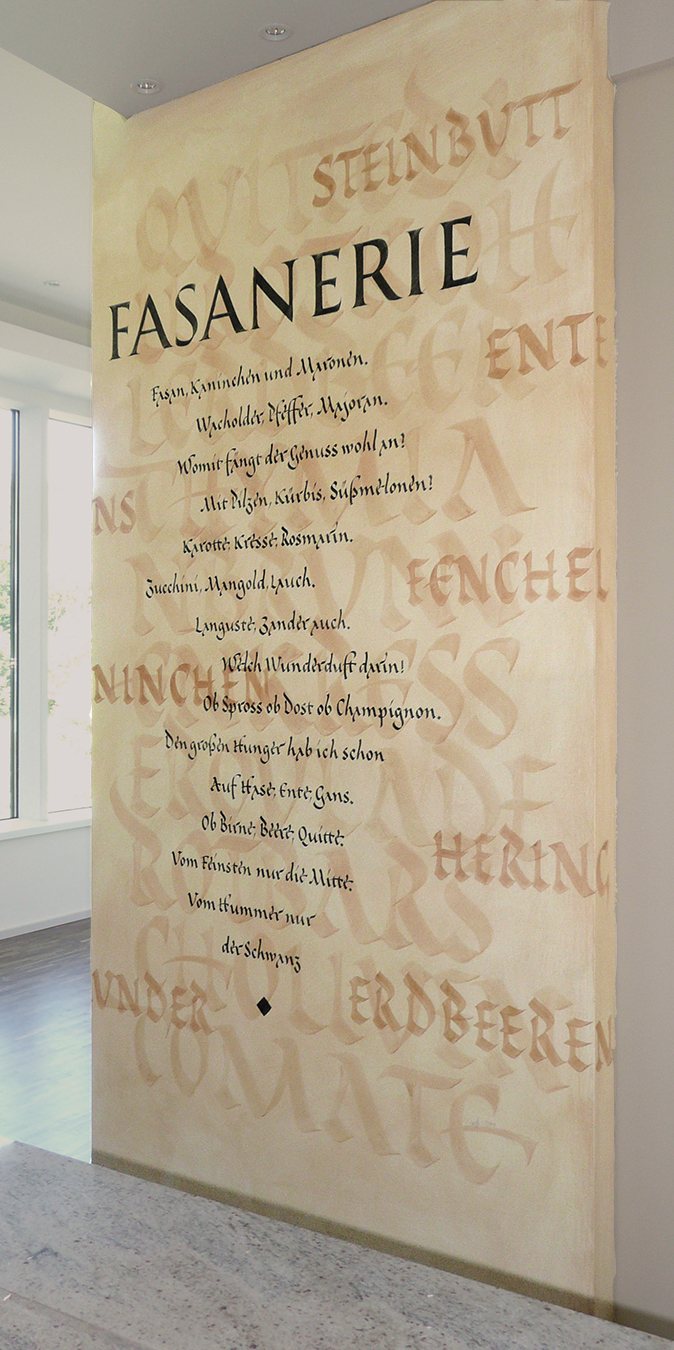 STEINBUTT
FASANERIE
ENTE
Fasan, Kaninchen und Maronen.
Wacholder, Pfeffer, Majoran.
Womit fängt der Genuss wohl an?
Mit Pilzen, Kürbis, Süßmelonen?
NS
Karotte, Kresse, Rosmarin.
Zucchini, Mangold, Lauch.
FENCHEL
Languste, Zander auch.
Welch Wunderduft darin!
NINCHEN
Ob Spross ob Dost ob Champignon.
Den großen Hunger hab ich schon
Auf Hase, Ente, Gans.
Ob Birne, Beere, Quitte:
HERING
Vom Feinsten nur die Mitte:
Vom Hummer nur
der Schwanz
UNDER
ERDBEEREN
TOMATE